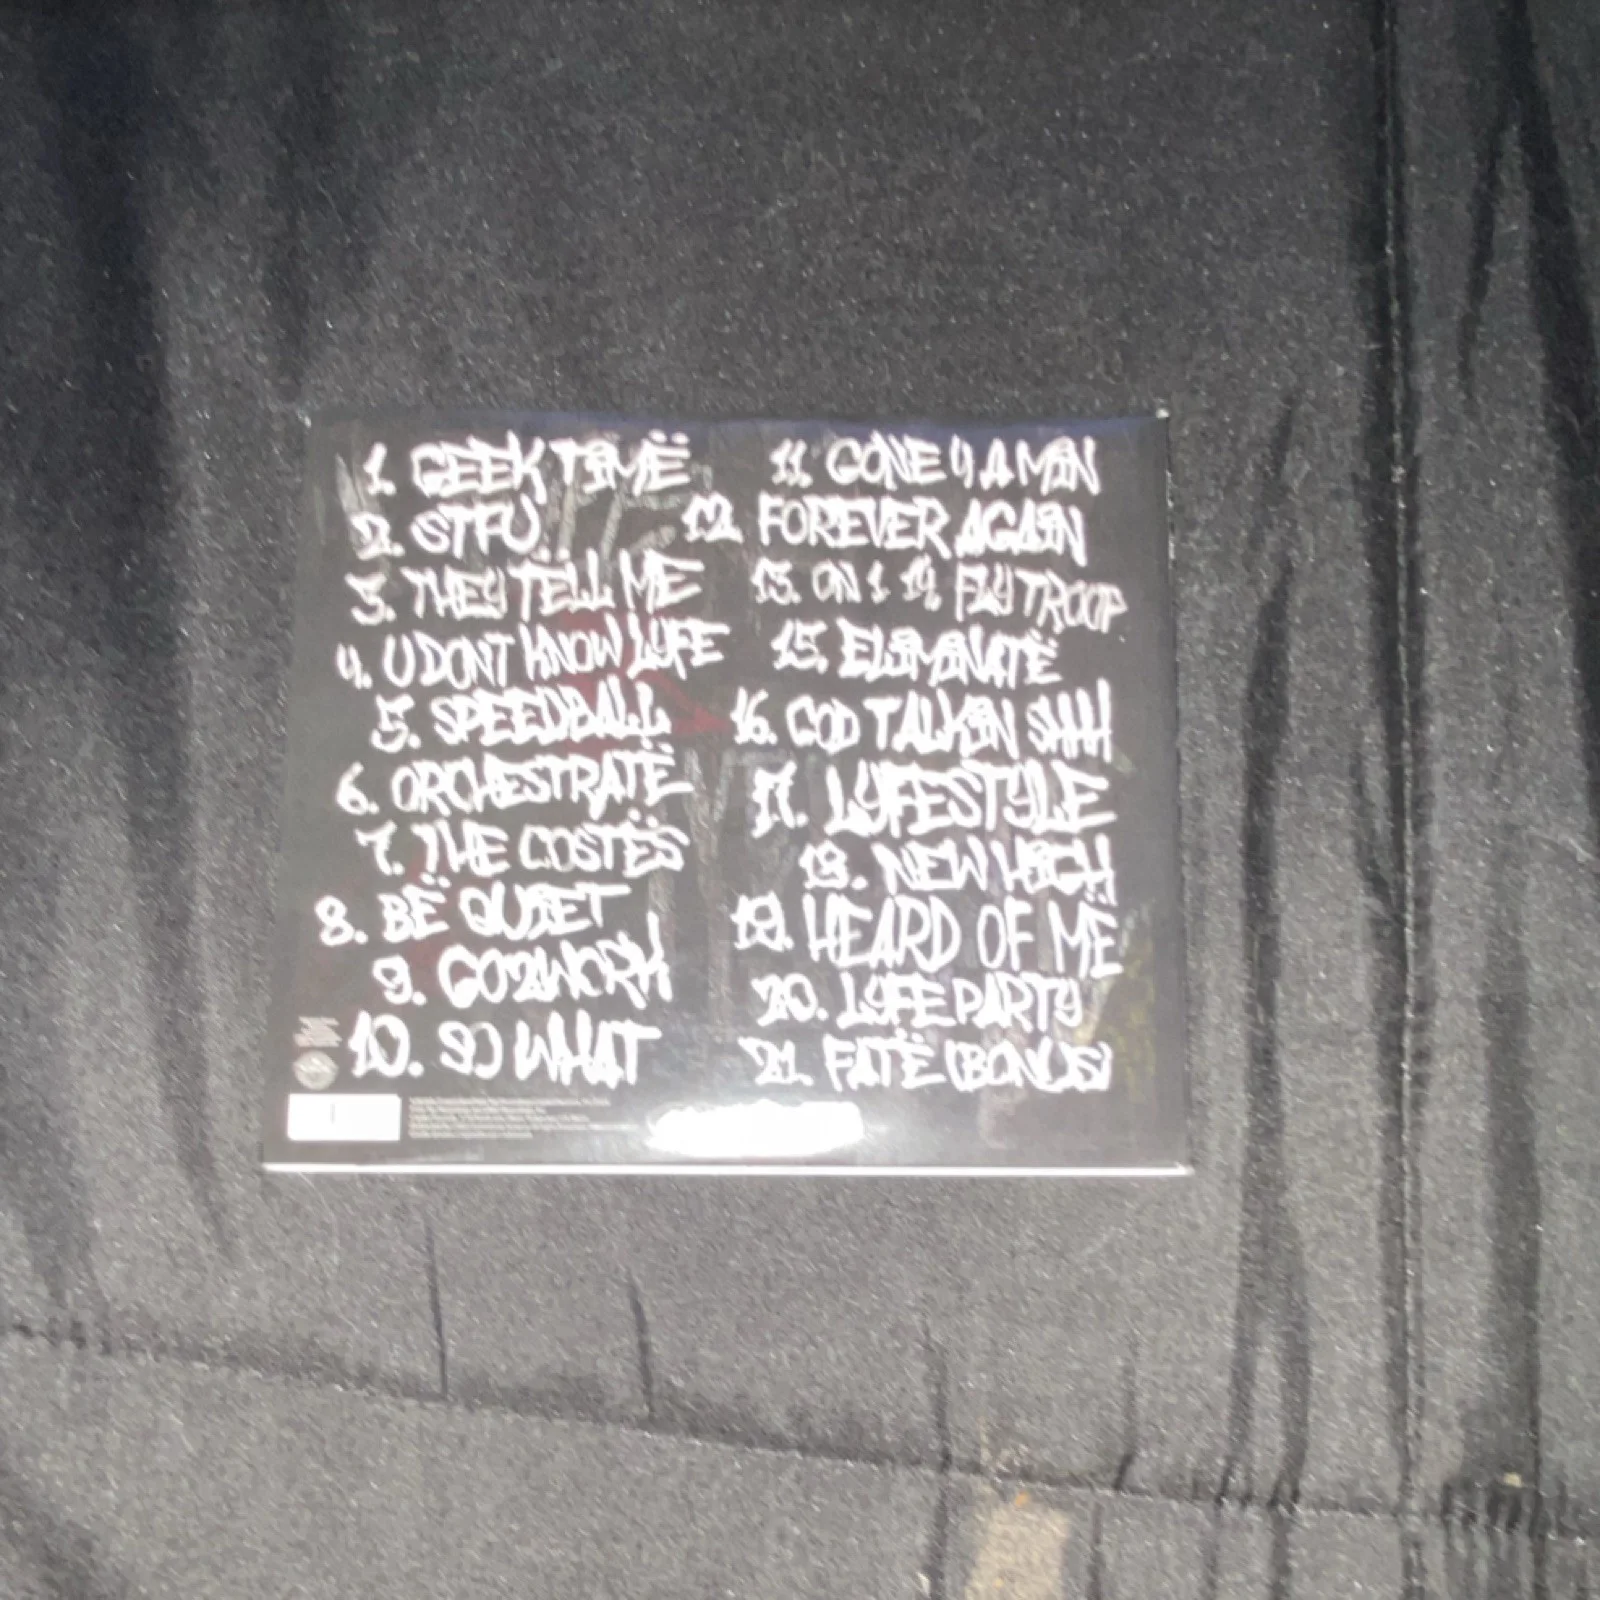 1 GEEK TIMË
2. STFU
3. THEY TËLL ME
4. U DONT KNOW LYFE
5. SPEEDBALL
6. ORCHESTRATË
7. THE COSTËS
8. BË QUIET
9. GO2WORK
10. SO WHAT
11. GONE 4 A MIN
12. FOREVER AGAIN
13. ON 1 14. FLY TROOP
15. ELIMINATË
16. GOD TALKIN SHHH
17. LYFESTYLE
18. NEW HIGH
19. HEARD OF ME
20. LYFE PARTY
21. FATË (BONUS)